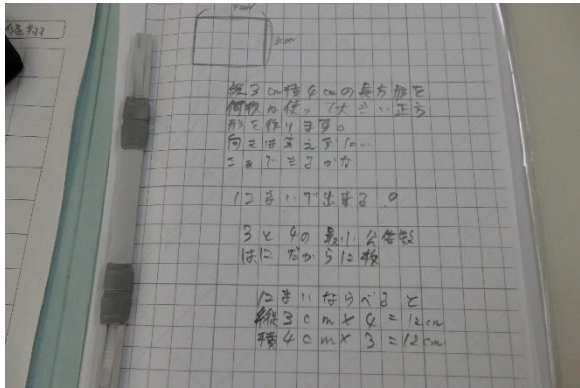 4cm
3cm
縦3cm横4cmの長方形を
何枚か使って大きい正方
形を作ります。
向きは変えずに…
こまでできるかな
12まいで出来る?
3と4の最小公倍数
は12だから12枚
12まいならべると
縦3cm×4=12cm
横4cm×3=12cm